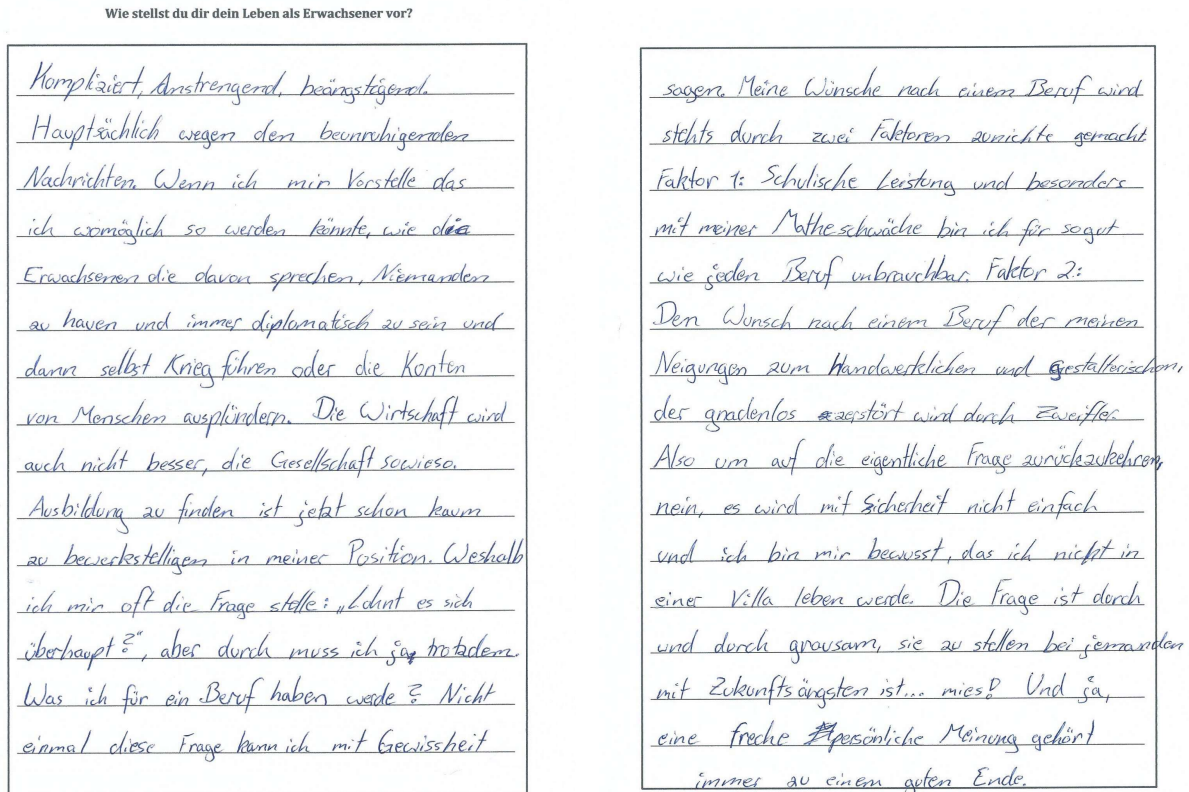 Wie stellst du dir dein Leben als Erwachsener vor?
Kompliziert, Anstrengend, beängstigend.
Hauptsächlich wegen den beunruhigenden
Nachrichten. Wenn ich mir Vorstelle das
ich womöglich so werden könnte, wie die
Erwachsenen die davon sprechen, Niemanden
zu hauen und immer diplomatisch zu sein und
dann selbst Krieg führen oder die Konten
von Menschen ausplündern. Die Wirtschaft wird
auch nicht besser, die Gesellschaft sowieso.
Ausbildung zu finden ist jetzt schon kaum
zu bewerkstelligen in meiner Position. Weshalb
ich mir oft die Frage stelle: „Lohnt es sich
überhaupt?“, aber durch muss ich ja trotzdem.
Was ich für ein Beruf haben werde? Nicht
einmal diese Frage kann ich mit Gewissheit
sagen. Meine Wünsche nach einem Beruf wird
stehts durch zwei Faktoren zunichte gemacht
Faktor 1: Schulische Leistung und besonders
mit meiner Matheschwäche bin ich für sogut
wie jeden Beruf unbrauchbar. Faktor 2:
Den Wunsch nach einem Beruf der meinen
Neigungen zum Handwerklichen und Gestallterischen,
der gnadenlos zerstört wird durch Zweifler.
Also um auf die eigentliche Frage zurückzukehren,
nein, es wird mit Sicherheit nicht einfach
und ich bin mir bewusst, das ich nicht in
einer Villa leben werde. Die Frage ist durch
und durch grausam, sie zu stellen bei jemanden
mit Zukunftsängsten ist... mies! Und ja,
eine freche persönliche Meinung gehört
immer zu einem guten Ende.